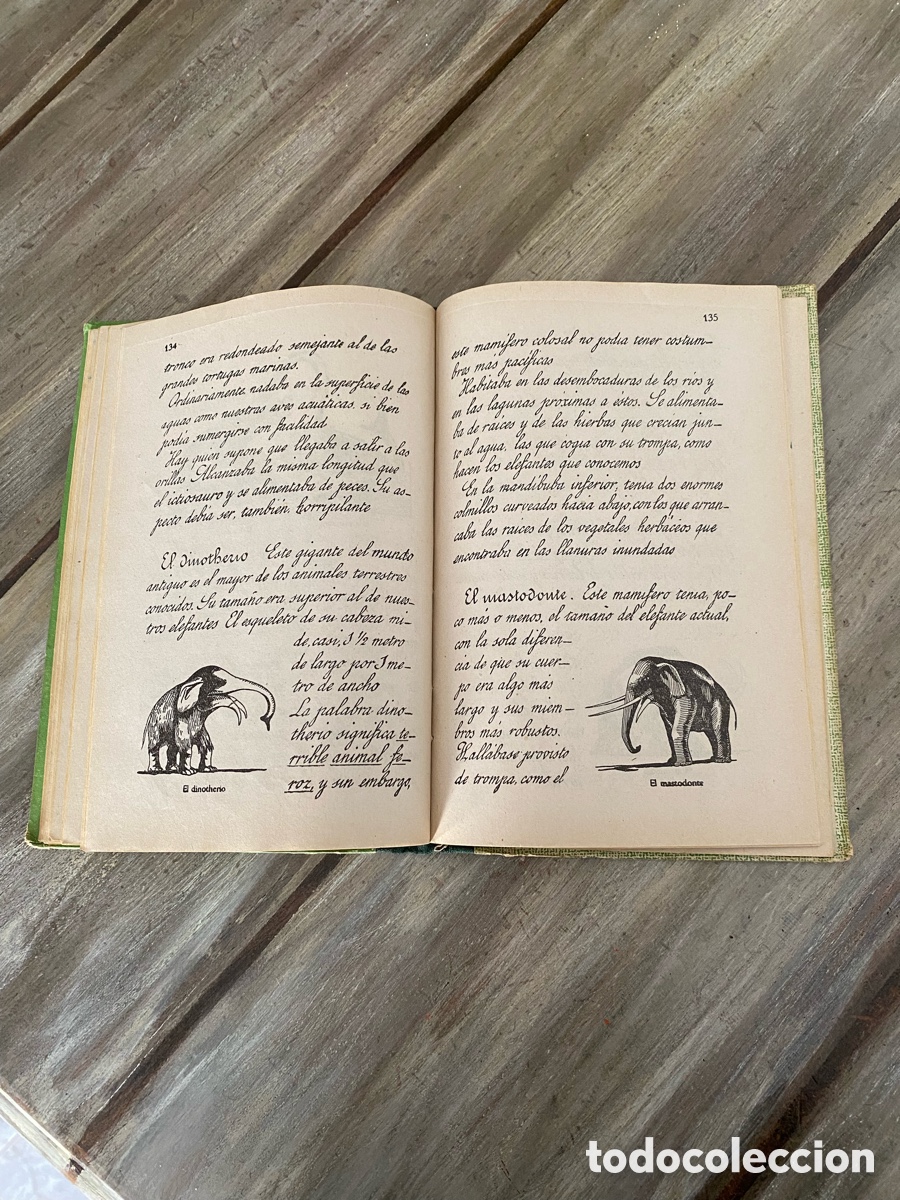 134
tronco era redondeado semejante al de las
grandes tortugas marinas.
Ordinariamente, nadaba en la superficie de las
aguas como nuestras aves acuáticas, si bien
podía sumergirse con facilidad
Hay quien supone que llegaba a salir a las
orillas Alcanzaba la misma longitud que
el ictiosauro y se alimentaba de peces. Su as-
pecto debía ser, también, horripilante
El dinotherio Este gigante del mundo
antiguo es el mayor de los animales terrestres
conocidos. Su tamaño era superior al de nues-
tros elefantes El esqueleto de su cabeza mi-
de, casi, 1 1/2 metro
de largo por 1 me-
tro de ancho
La palabra dino-
therio significa te-
rrible animal fe-
roz, y sin embargo,
El dinotherio
135
este mamífero colosal no podía tener costum-
bres más pacíficas
Habitaba en las desembocaduras de los ríos y
en las lagunas próximas a estos. Se alimenta-
ba de raíces y de las hierbas que crecían jun-
to al agua, las que cogía con su trompa, como
hacen los elefantes que conocemos
En la mandíbula inferior, tenía dos enormes
colmillos curveados hacia abajo, con los que arran-
caba las raíces de los vegetales herbáceos que
encontraba en las llanuras inundadas
El mastodonte. Este mamífero tenía, po-
co más o menos, el tamaño del elefante actual,
con la sola diferen-
cia de que su cuer-
po era algo más
largo y sus miem-
bros más robustos.
Hallábase provisto
de trompa, como el
El mastodonte
todocoleccion